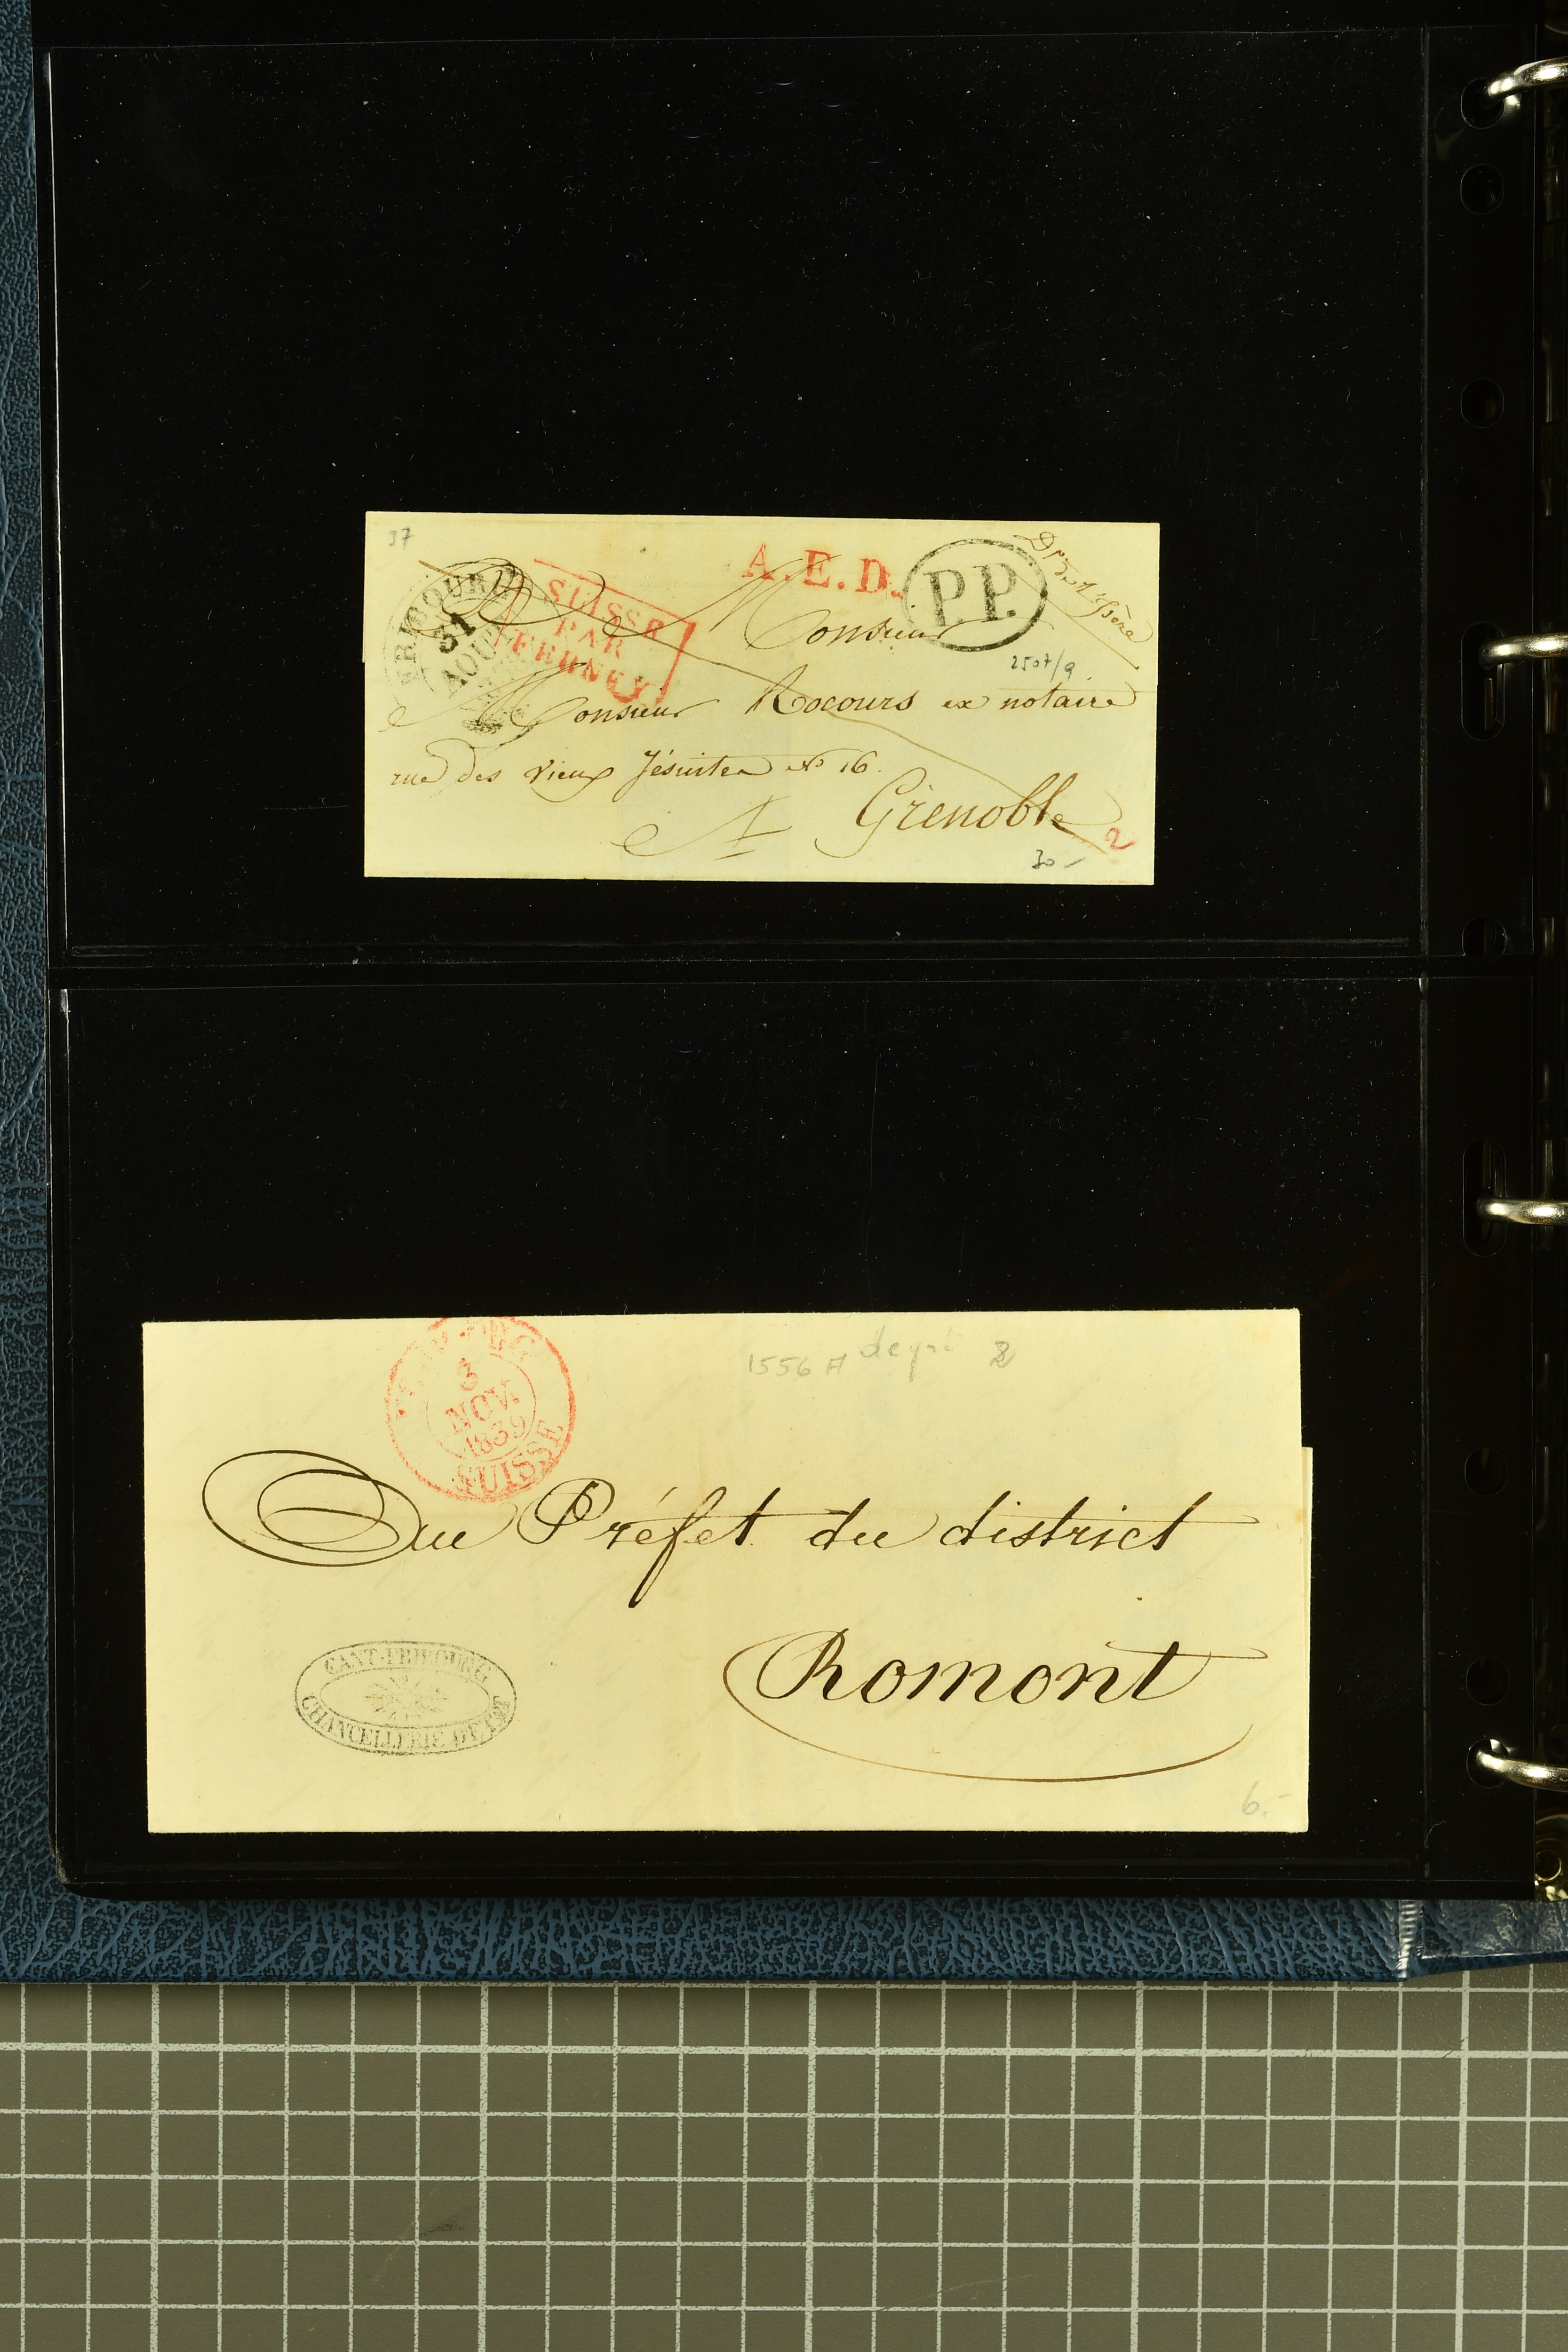 37
A.E.D.
P.P.
FRIBOURG
31
AOUT
SUISSE
PAR
FERNEY
Monsieur
2507/9
Monsieur Rocours ex notaire
rue des vieux Jésuites N° 16.
A Grenoble
2
30 -
1556 A 2
3
NOV.
1839
SUISSE
Au Préfet du district
Romont
CANT. FRIBOURG
CHANCELLERIE D'ETAT
6.-